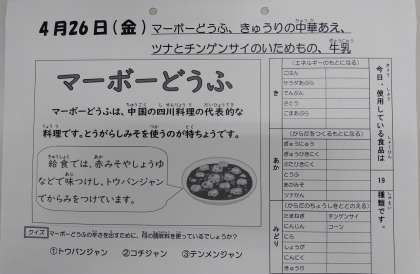 4月26日(金) マーボーどうふ、きゅうりの中華あえ、
ツナとチンゲンサイのいためもの、牛乳
マーボーどうふ
マーボーどうふは、中国の四川料理の代表的な
料理です。とうがらしみそを使うのが特ちょうです。
給食では、赤みそやしょうゆ
などで味つけし、トウバンジャン
でからみをつけています。
クイズ マーボーどうふの辛さを出すために、何の調味料を使っているでしょうか?
①トウバンジャン ②コチジャン ③テンメンジャン
今日、使用している食品は
19
種類です。
き
(エネルギーのもとになる)
ごはん
サラダあぶら
でんぷん
さとう
ごまあぶら
あか
(からだをつくるもとになる)
ぎゅうにゅう
ぎゅうひきにく
ぶたひきにく
とうふ
あかみそ
ツナかん
みどり
(からだのちょうしをととのえる)
たまねぎ チンゲンサイ
にんじん コーン
にら
しょうが
にんにく
きゅうり